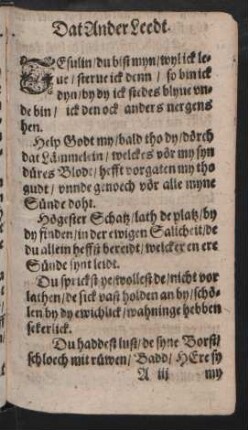 Dat Ander Leedt.
JEsulin / du bist myn / wyl ick le-
ue / sterue ick denn / so bin ick
dyn / by dy ick stedes blyue vn-
de bin / ick den ock anders nergens
hen.
Help Godt my / bald tho dy / dörch
dat Lämmelein / welckes vör my syn
düres Blodt / hefft vorgaten my tho
gudt / vnnde genoech vör alle myne
Sünde doht.
Högester Schatz / lath de platz / by
dy finden / in der ewigen Salicheit / de
du allein heffst bereidt / welcker en ere
Sünde synt leidt.
Du sprickst ye / wollest de / nicht vor
lathen / de sick vast holden an dy / schö-
len by dy ewichlick / wahninge hebben
sekerlick.
Du haddest lust / de syne Borst /
schloech mit rüwen / Badd / HEre sy
A iij my